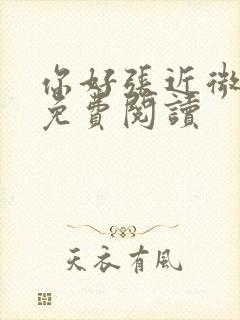 你好張近微
免費閱讀
天衣有風